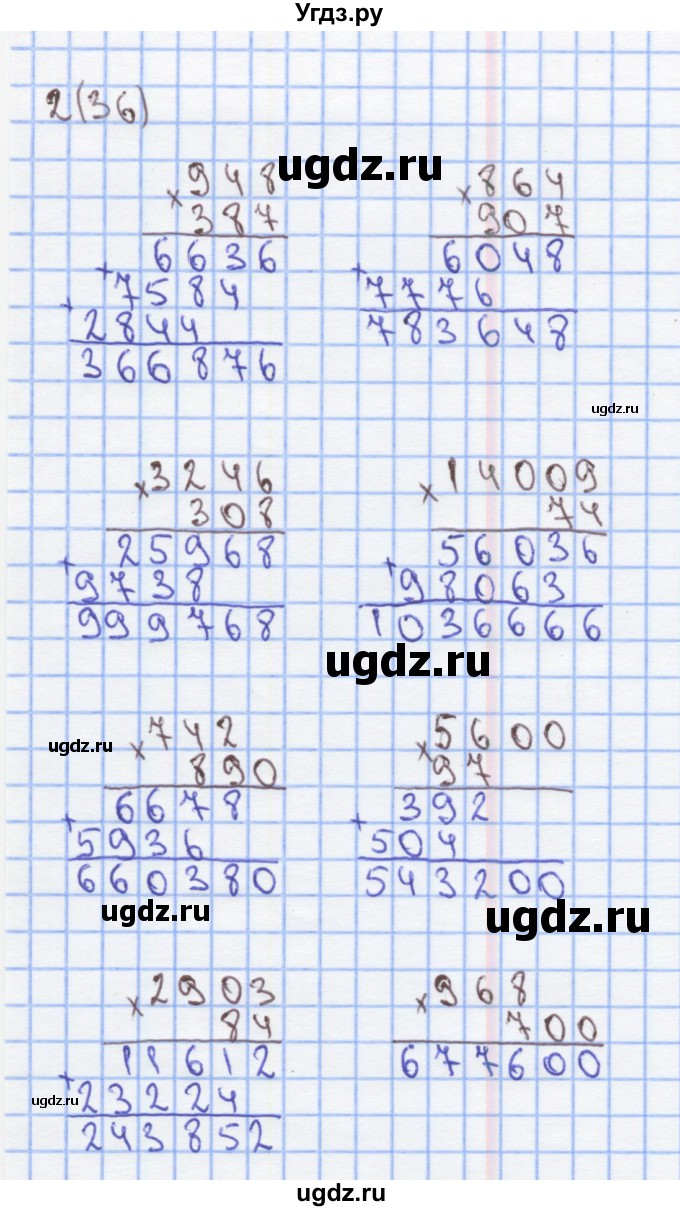 Угдз.ру
2(36)
ugdz.ru
× 948
387
6636
+ 7584
+ 2844
366876
× 864
907
6048
+ 7776
783648
ugdz.ru
× 3246
308
25968
+ 9738
999768
× 14009
74
56036
+ 98063
1036666
ugdz.ru
ugdz.ru
× 742
890
6678
+ 5936
660380
× 5600
97
392
+ 504
543200
ugdz.ru
ugdz.ru
× 2903
84
11612
+ 23224
243852
× 968
700
677600
ugdz.ru
ugdz.ru